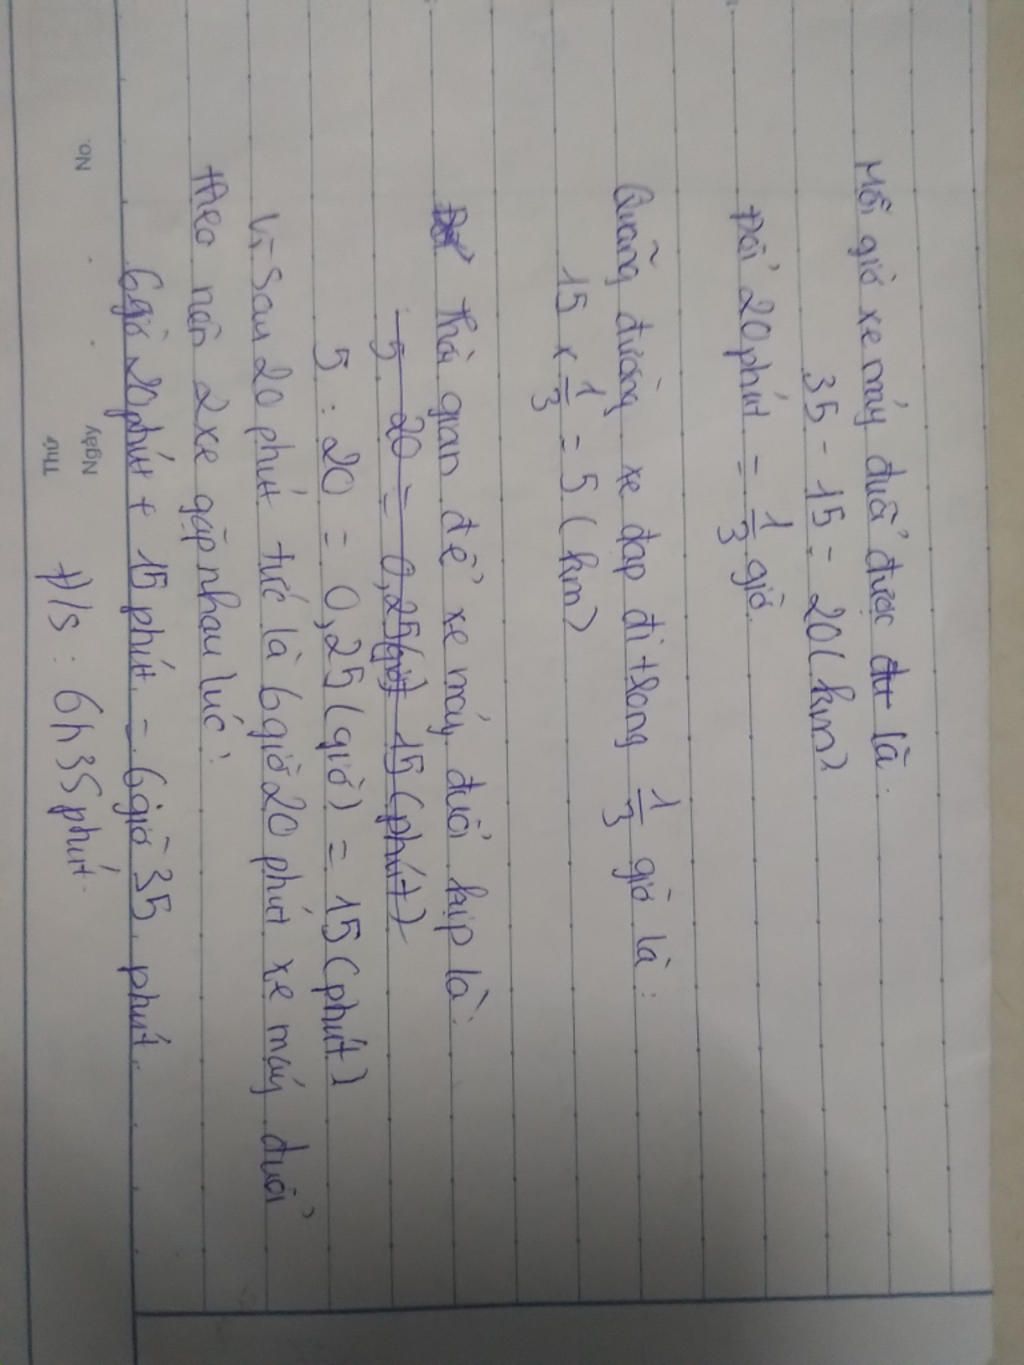 Mỗi giờ xe máy đuổi được là
35 - 15 = 20 (km)
Đổi 20 phút = 1/3 giờ.
Quãng đường xe đạp đi trong 1/3 giờ là:
15 × 1/3 = 5 (km)
Thời gian để xe máy đuổi kịp là:
5 20 = 0,25 (giờ) 15 (phút)
5 : 20 = 0,25 (giờ) = 15 (phút)
Vì sau 20 phút tức là 6 giờ 20 phút xe máy đuổi
theo nên 2 xe gặp nhau lúc:
6 giờ 20 phút + 15 phút = 6 giờ 35 phút.
Đ/s: 6h 35 phút.
Thứ
Ngày
No.